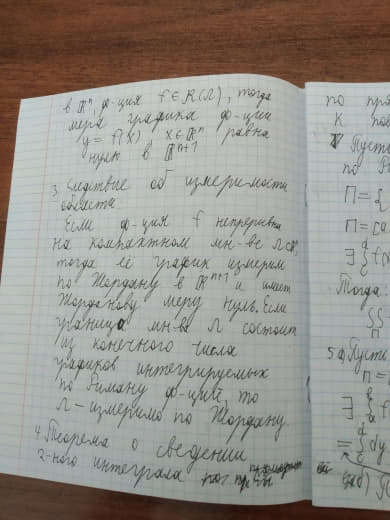 в ℝⁿ, ф-ция f ∈ R(Ω), тогда
мера графика ф-ции
y = f(x) x∈ℝⁿ равна
нулю в ℝⁿ⁺¹
3. Следствие об измери-мости
области
Если ф-ция f непрерывна
на компактном мн-ве Ω
тогда её график измерим
по Жордану в ℝⁿ⁺¹ и имеет
Жорданову меру нуль. Если
граница мн-ва Ω состоит
из конечного числа
графиков интегрируемых
по Риману ф-ций, то
Ω – измеримо по Жордану.
4. Теорема о сведении
2-ного интеграла
по пря
к пов
Пусть
по
П = {
П = [a
∃ ∫ f(x
Тогда:
∫∫
П
5. Пусти
П =
∃ ∫
= ∫ dy